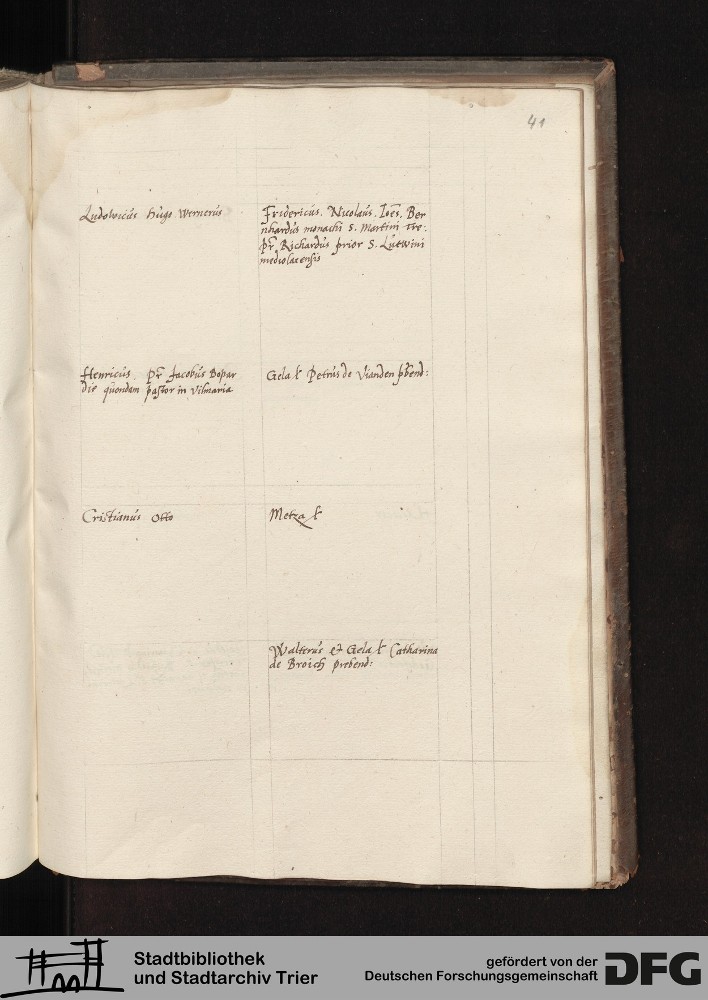 41
Ludowicus Hugo Wernerus
Fridericus. Nicolaus. Ioēs. Ber
nhardus monachi S. Martini Tre:
pr̄ Richardus prior S. Lutwini
mediolacensis
Henricus. Pr̄ Jacobus Bopar
die quondam pastor in Vilmaria
Gela ł Petrus de Vianden p̄bend:
Cristianus Otto
Metza ł
Walterus & Gela ł Catharina
de Broich prebend:
Stadtbibliothek
und Stadtarchiv Trier
gefördert von der
Deutschen Forschungsgemeinschaft
DFG